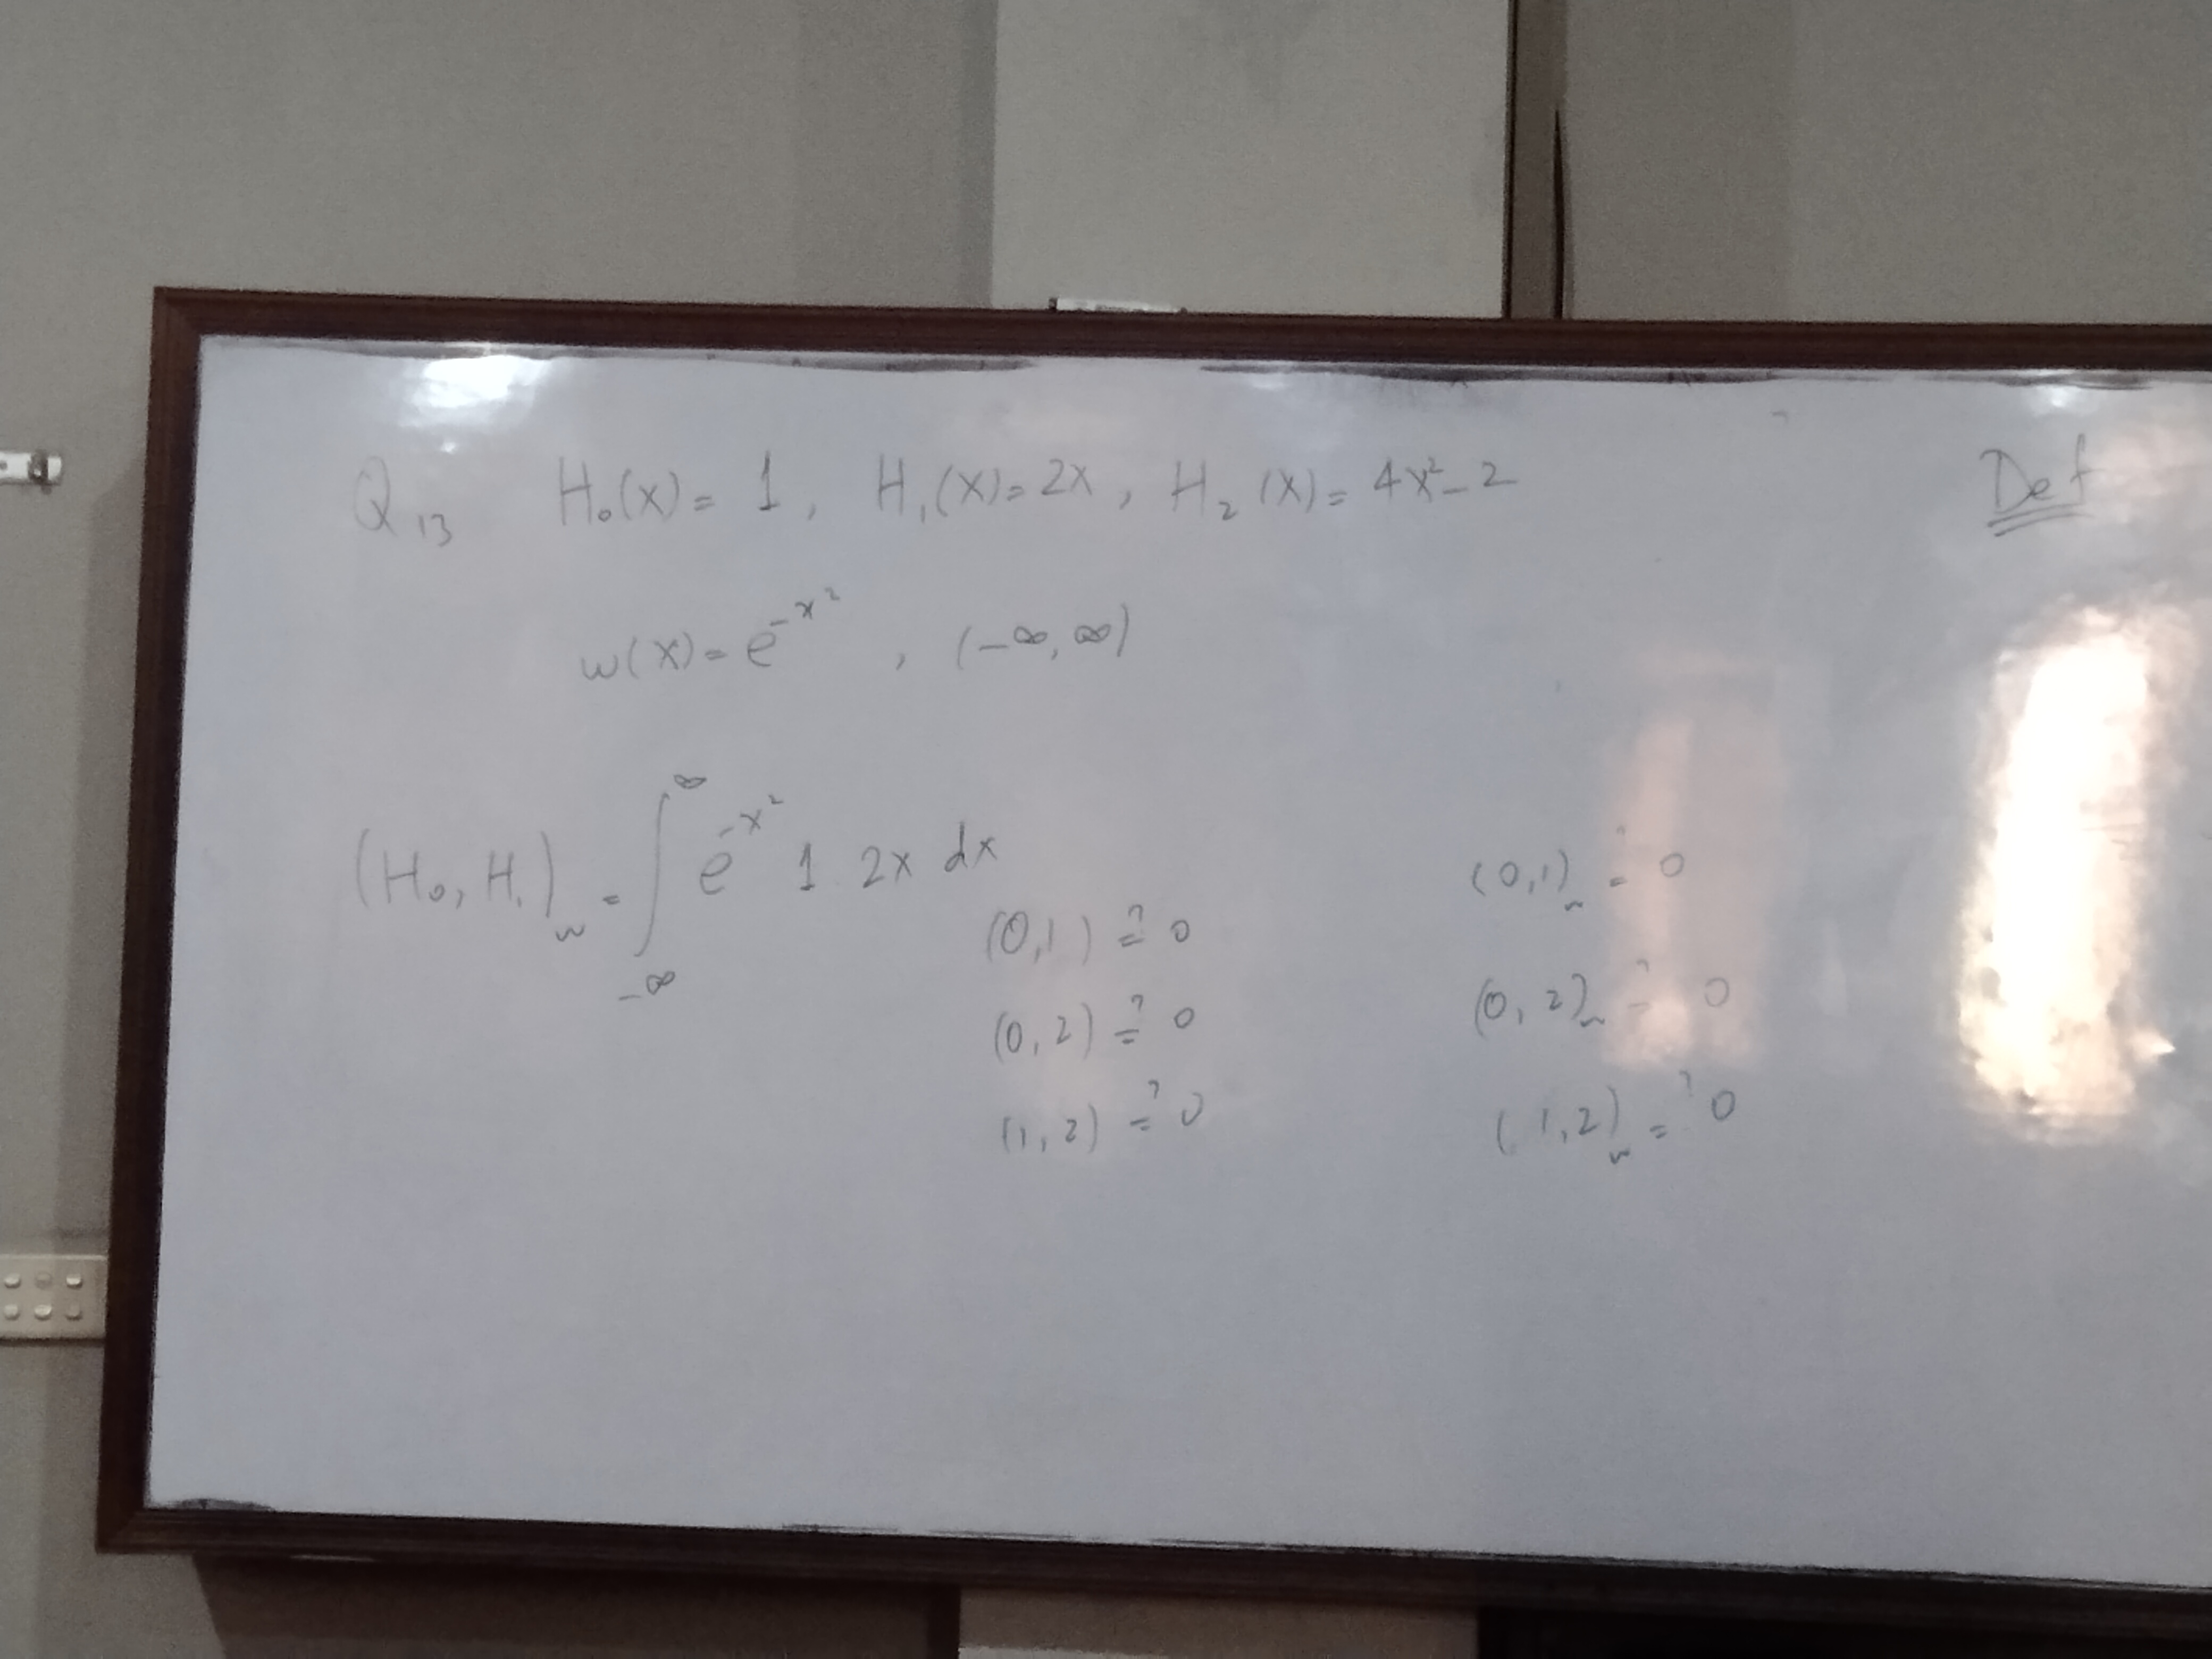 Q13 H₀(x) = 1, H₁(x) = 2x, H₂(x) = 4x² - 2
w(x) = e^{-x²}, (-∞, ∞)
(H₀, H₁)_w = ∫_{-∞}^{∞} e^{-x²} 1 . 2x dx
(0,1) ≟ 0
(0,2) ≟ 0
(1,2) ≟ 0
(0,1)_w ≟ 0
(0,2)_w ≟ 0
(1,2)_w ≟ 0
Def